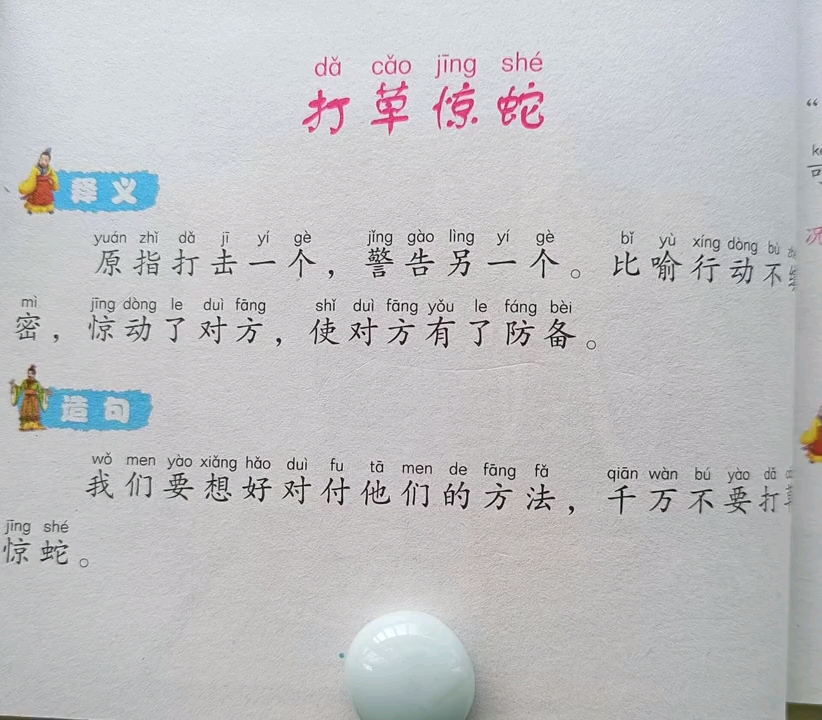 dǎ cǎo jīng shé
打草惊蛇
释义
yuán zhǐ dǎ jī yí gè jǐng gào lìng yí gè bǐ yù xíng dòng bù
原指打击一个，警告另一个。比喻行动不
mì jīng dòng le duì fāng shǐ duì fāng yǒu le fáng bèi
密，惊动了对方，使对方有了防备。
造句
wǒ men yào xiǎng hǎo duì fu tā men de fāng fǎ qiān wàn bú yào dǎ
我们要想好对付他们的方法，千万不要打草
jīng shé
惊蛇。